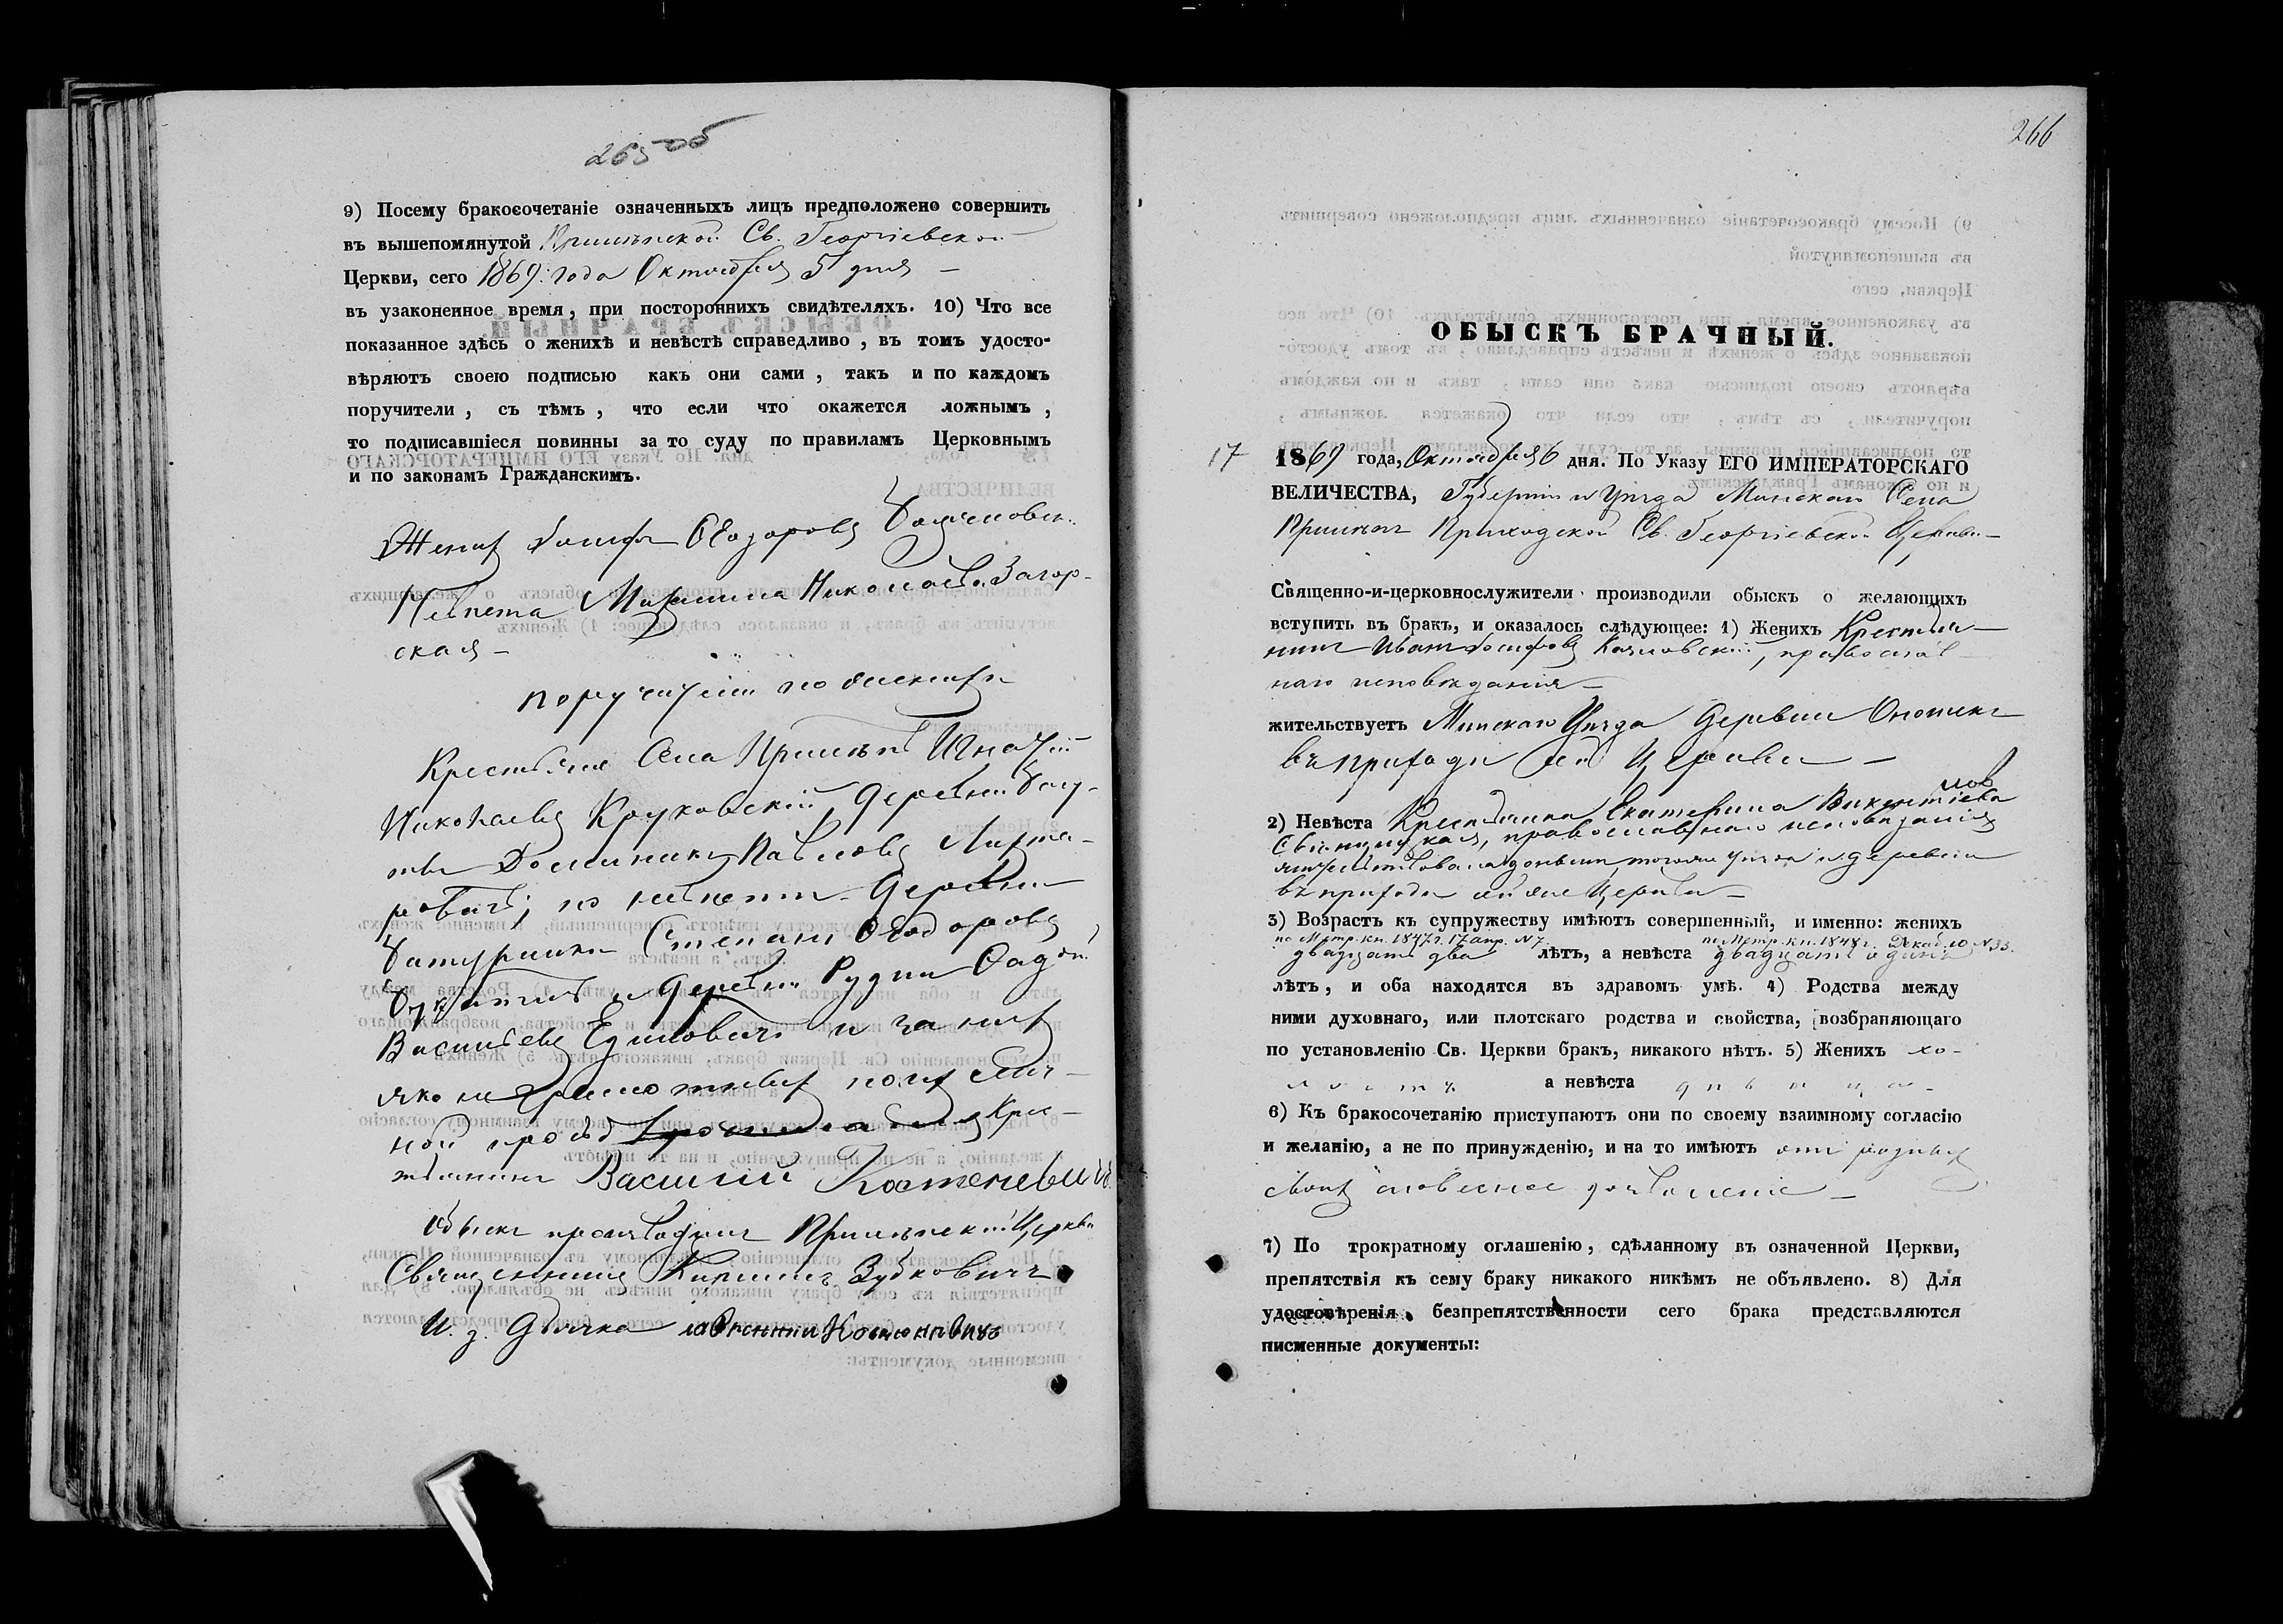 265 об
9) Посему бракосочетаніе означенныхъ лицъ предположено совершить
въ вышепомянутой Св. Георгіевской
Церкви, сего 1869. года Октября 5 дня —
въ узаконенное время, при постороннихъ свидѣтеляхъ. 10) Что все
показанное здѣсь о женихѣ и невѣстѣ справедливо, въ томъ удосто-
вѣряютъ своею подписью какъ они сами, такъ и по каждомъ
поручители, съ тѣмъ, что если что окажется ложнымъ,
то подписавшіеся повинны за то суду по правиламъ Церковнымъ
и по законамъ Гражданскимъ.
Женихъ Іосифъ Ѳеодоровъ
Невѣста Николаева Загор-
ская —
поручители по женихѣ
Крестьяне Села Игнатій
Николаевъ деревни
Доминикъ Павловъ
по невѣстѣ деревни
Степанъ Ѳеодоровъ
и деревни Рудни Фадей
Васильевъ и за нихъ
яко неграмотныхъ по ихъ лич-
ной просьбѣ Крес-
тьянинъ Василій Костеневичъ.
Обыскъ производилъ Церкви
Священникъ Кириллъ Зубковичъ
И. д. Дьячка
266
ОБЫСКЪ БРАЧНЫЙ.
17 1869 года, Октября 6 дня. По Указу ЕГО ИМПЕРАТОРСКАГО
ВЕЛИЧЕСТВА, Губерніи и Уѣзда Минскаго Села
Приходской Св. Георгіевской Церкви —
Священно-и-церковнослужители производили обыскъ о желающихъ
вступить въ бракъ, и оказалось слѣдующее: 1) Женихъ Крестья-
нинъ Иванъ Іосифовъ православ-
наго исповѣданія —
жительствуетъ Минскаго Уѣзда Деревни
въ приходѣ сей Церкви —
2) Невѣста Крестьянка Екатерина Викентіева
православнаго исповѣданія
жительствовала донынѣ тогоже уѣзда и деревни
въ приходѣ сей же Церкви —
3) Возрастъ къ супружеству имѣютъ совершенный, и именно: женихъ
по Метр. кн. 1847 г. 17 апр. № 7. по Метр. кн. 1848 г. Декаб. 10 № 33.
двадцать два лѣтъ, а невѣста двадцать одинъ
лѣтъ, и оба находятся въ здравомъ умѣ. 4) Родства между
ними духовнаго, или плотскаго родства и свойства, возбраняющаго
по установленію Св. Церкви бракъ, никакого нѣтъ. 5) Женихъ хо-
лостъ а невѣста дѣвица —
6) Къ бракосочетанію приступаютъ они по своему взаимному согласію
и желанію, а не по принужденію, и на то имѣютъ отъ родныхъ
своихъ словесное дозволеніе —
7) По трократному оглашенію, сдѣланному въ означенной Церкви,
препятствія къ сему браку никакого никѣмъ не объявлено. 8) Для
удостовѣренія безпрепятственности сего брака представляются
писменные документы: